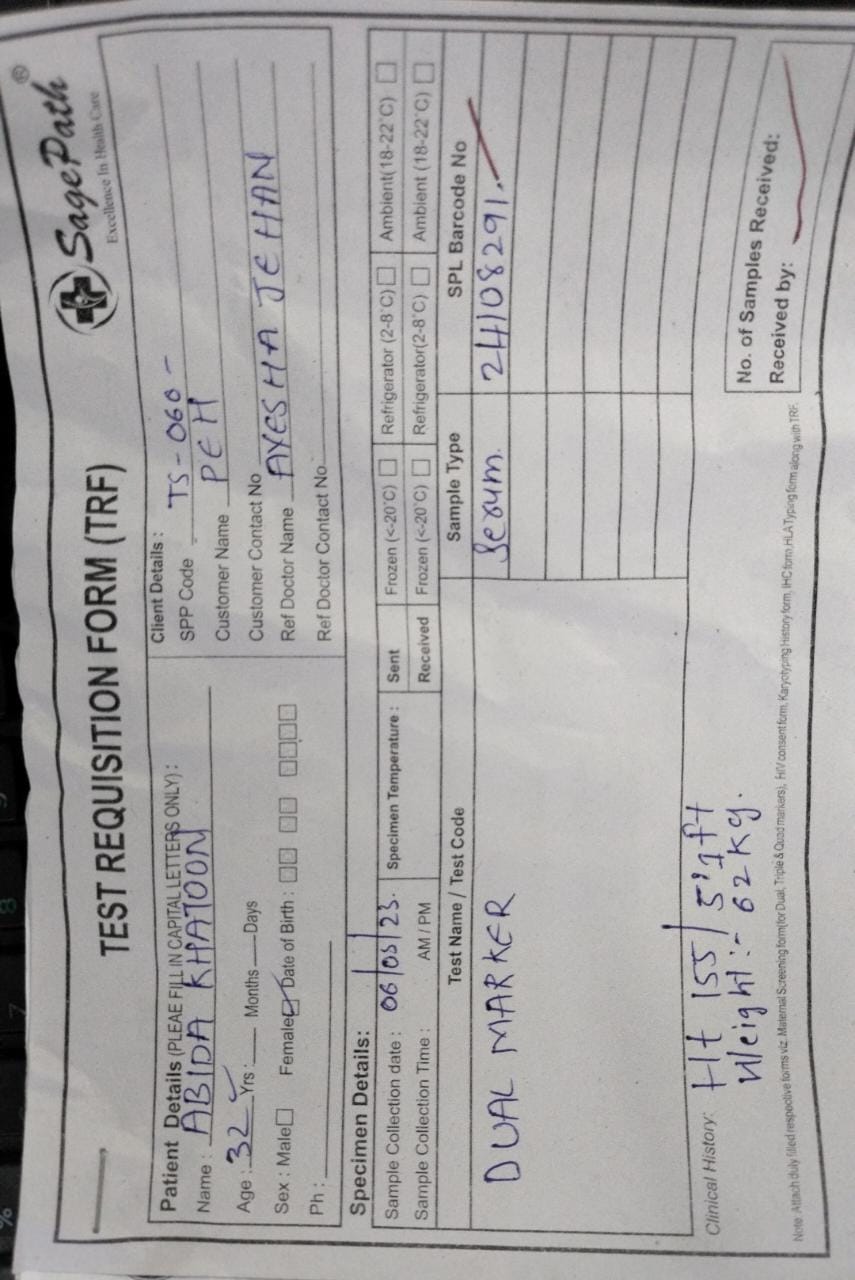 SagePath®
Excellence In Health Care
TEST REQUISITION FORM (TRF)
Patient Details (PLEAE FILL IN CAPITAL LETTERS ONLY) :
Name : ABIDA KHATOON
Age : 32 Yrs : Months Days
Sex : Male Female Date of Birth :
Ph :
Client Details :
SPP Code TS-060-
Customer Name PEH
Customer Contact No
Ref Doctor Name AYESHA JEHAN
Ref Doctor Contact No
Specimen Details:
Sample Collection date : 06/05/23. Specimen Temperature : Sent Frozen (<-20°C) Refrigerator (2-8°C) Ambient(18-22°C)
Sample Collection Time : AM / PM Received Frozen (<-20°C) Refrigerator(2-8°C) Ambient (18-22°C)
Test Name / Test Code Sample Type SPL Barcode No
DUAL MARKER Serum. 24108291.
Clinical History: Ht 155/ 5'1ft
Weight:- 62Kg.
No. of Samples Received:
Received by:
Note: Attach duly filled respective forms viz. Maternal Screening form(for Dual, Triple & Quad markers), HIV consent form, Karyotyping History form, IHC form, HLA Typing form along with TRF.